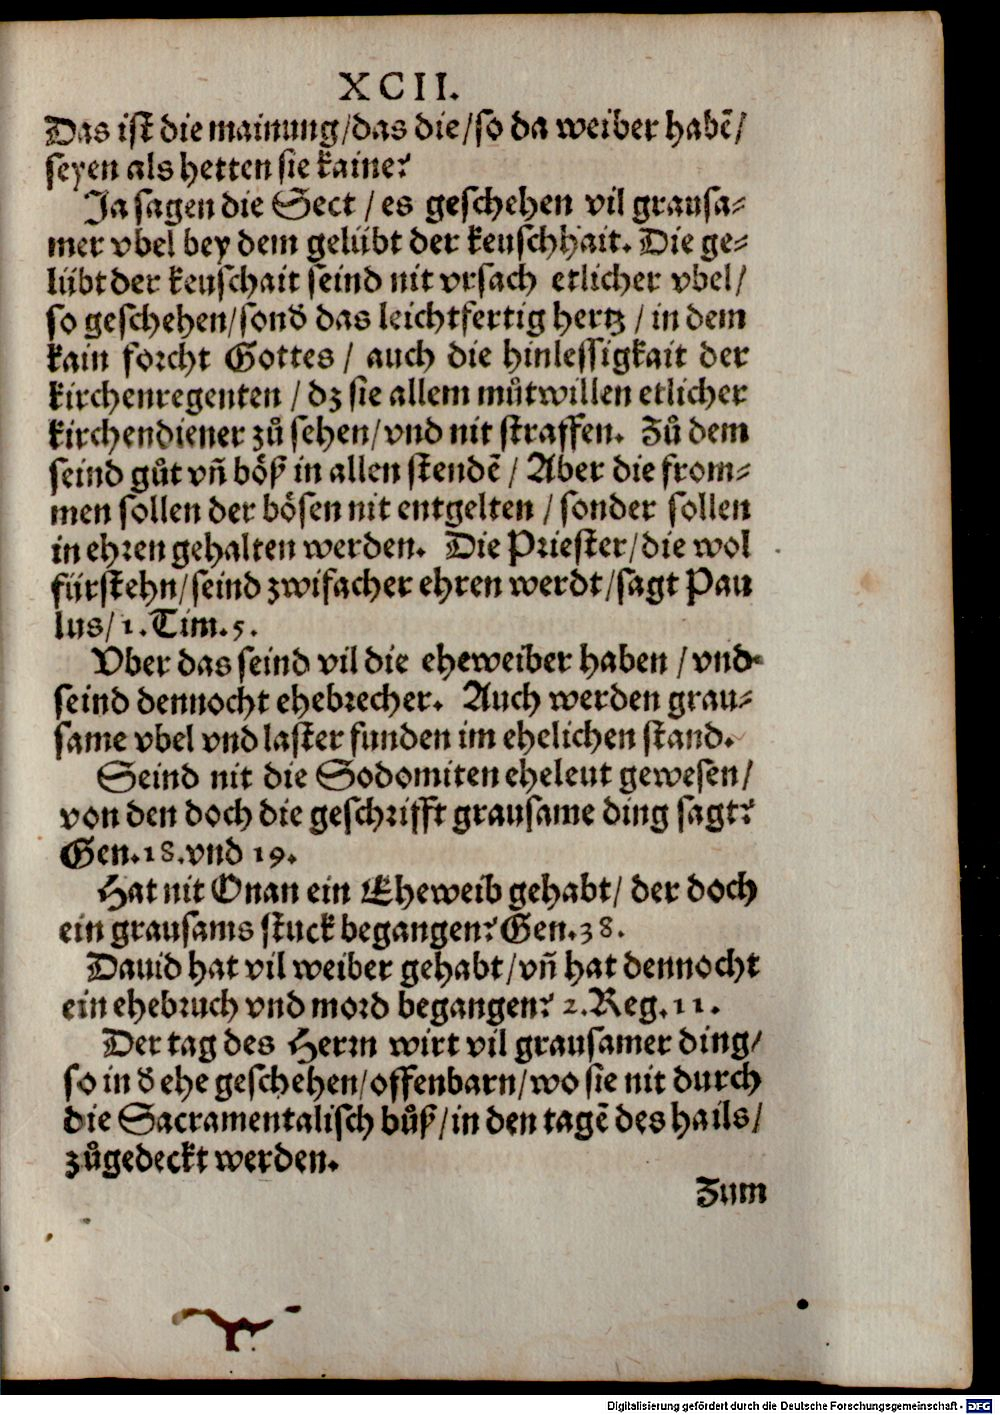 XCII.
Das ist die mainung/das die/so da weiber habē/
seyen als hetten sie kaine?
Ja sagen die Sect / es geschehen vil grausa⸗
mer vbel bey dem gelübt der keuschhait. Die ge⸗
lübt der keuschait seind nit vrsach etlicher vbel/
so geschehen/sonđ das leichtfertig hertz / in dem
kain forcht Gottes / auch die hinlessigkait der
kirchenregenten / dz sie allem můtwillen etlicher
kirchendiener zů sehen/vnd nit straffen. Zů dem
seind gůt vñ böß in allen stendē / Aber die from⸗
men sollen der bösen nit entgelten / sonder sollen
in ehren gehalten werden. Die Priester/die wol
fürstehn/seind zwifacher ehren werdt/sagt Pau
lus/1.Tim.5.
Vber das seind vil die eheweiber haben /vnd
seind dennocht ehebrecher. Auch werden grau⸗
same vbel vnd laster funden im ehelichen stand.
Seind nit die Sodomiten eheleut gewesen/
von den doch die geschrifft grausame ding sagt?
Gen.18.vnd 19.
Hat nit Onan ein Eheweib gehabt/ der doch
ein grausams stuck begangen? Gen.38.
Dauid hat vil weiber gehabt/vñ hat dennocht
ein ehebruch vnd mord begangen? 2.Reg.11.
Der tag des Herrn wirt vil grausamer ding/
so in đ ehe geschehen/offenbarn/wo sie nit durch
die Sacramentalisch bůß/in den tagē des hails/
zůgedeckt werden.
Zum
Digitalisierung gefördert durch die Deutsche Forschungsgemeinschaft - DFG